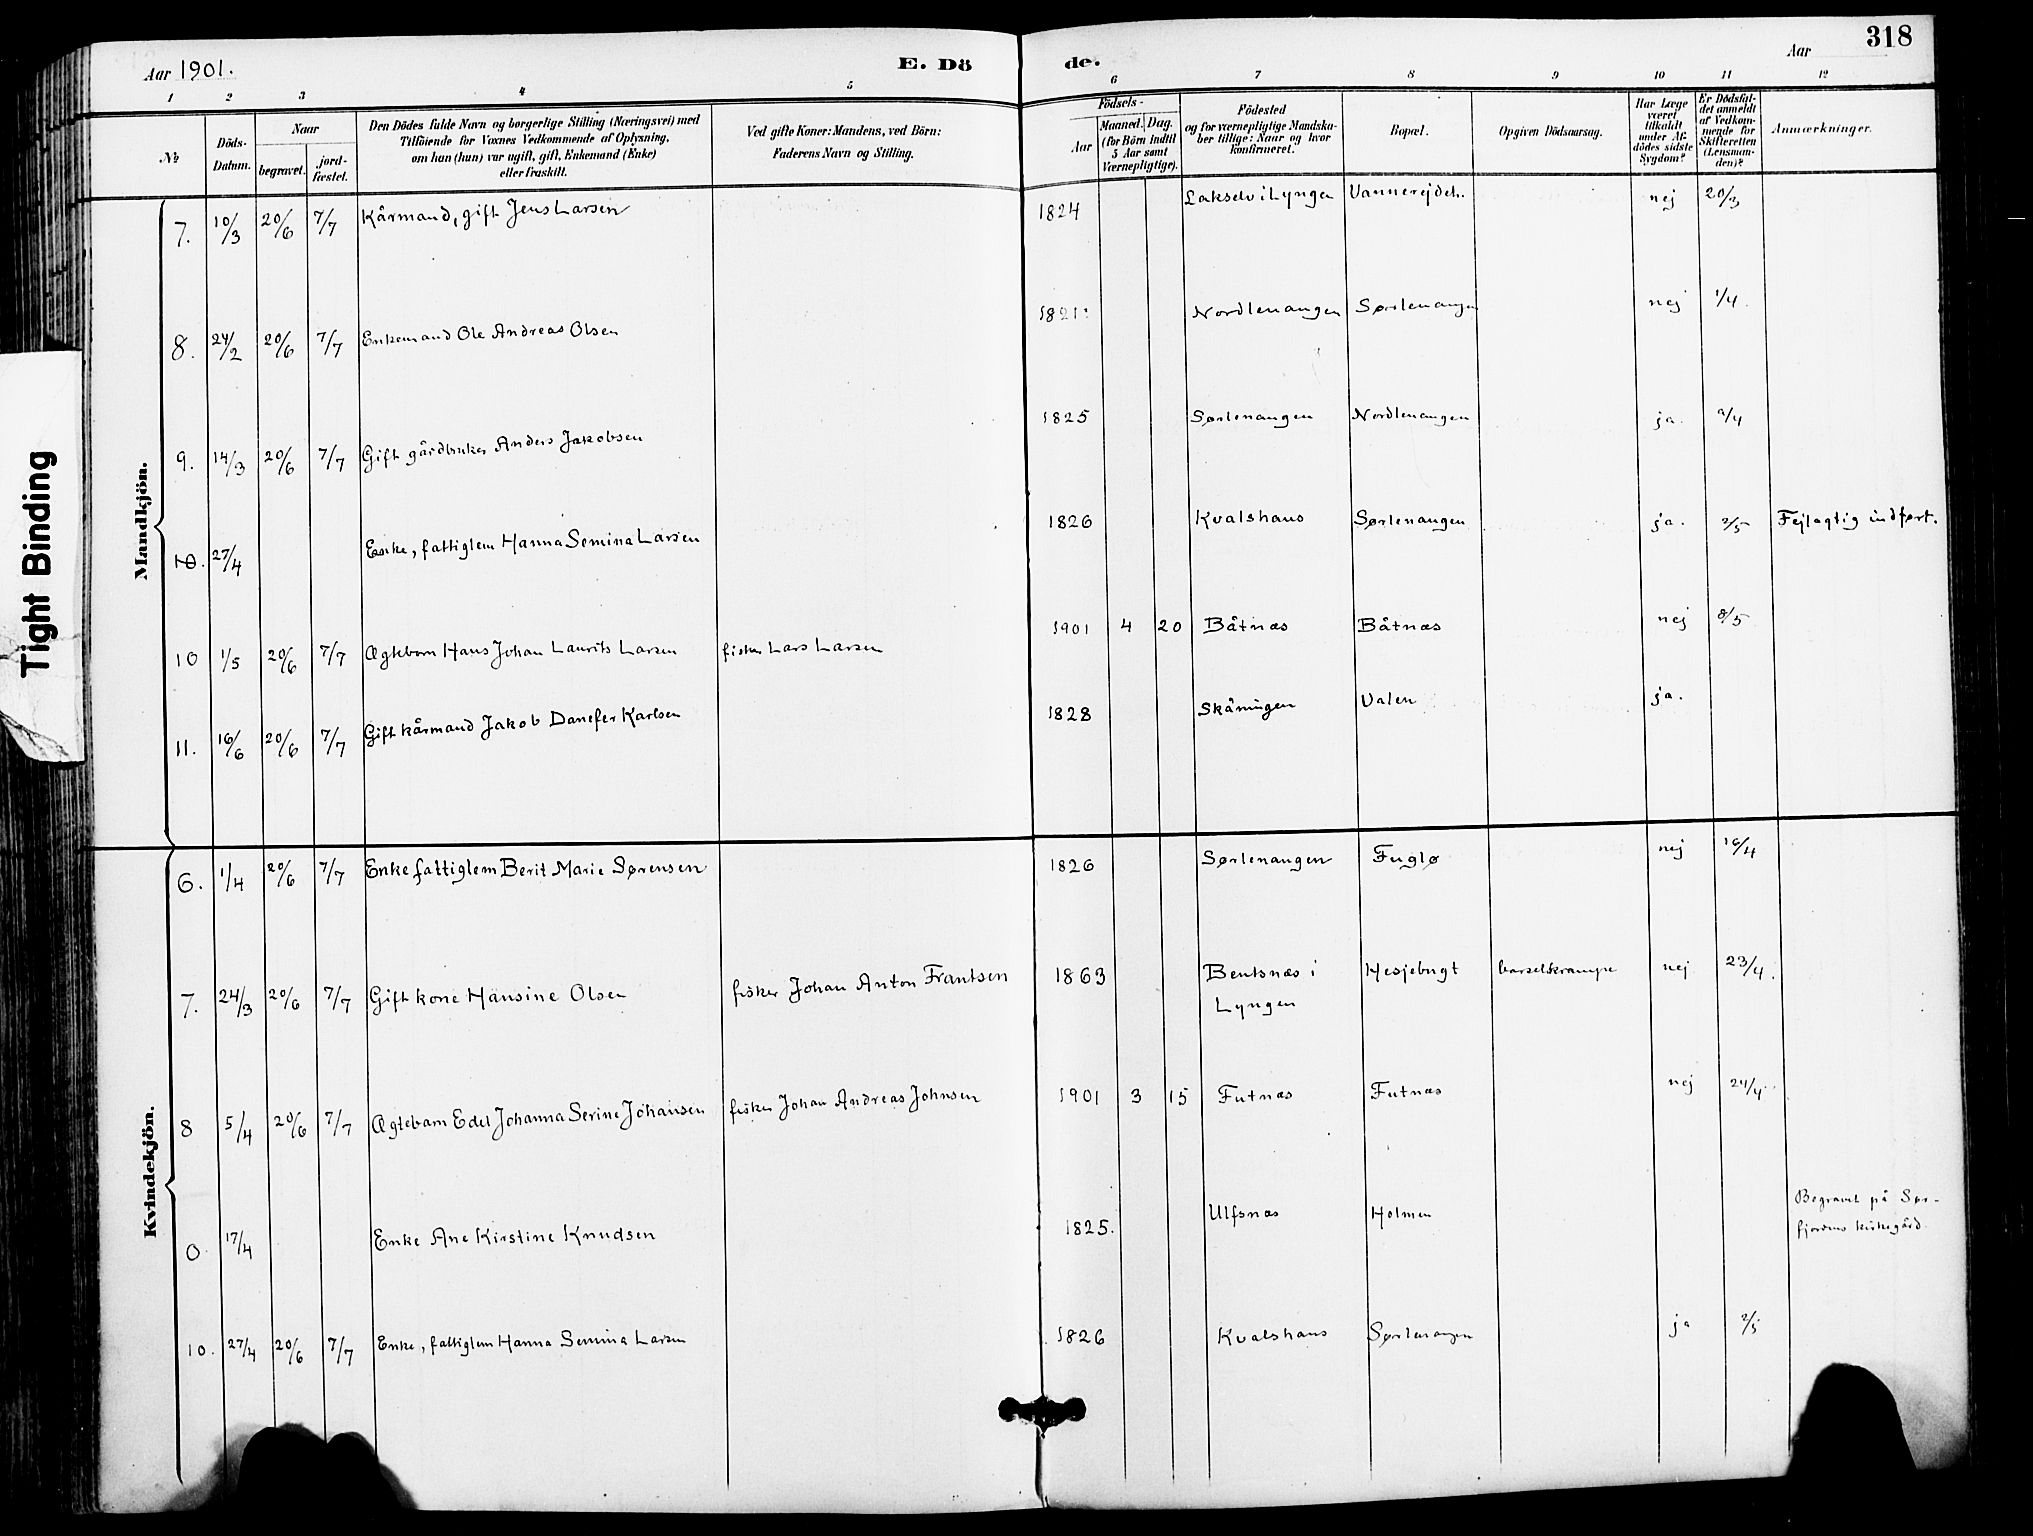 318
Aar 1901. E. Dö de. Aar
1 2 3 4 5 6 7 8 9 10 11 12
№ Döds-Datum. Naar begravet. jord-fæstet. Den Dödes fulde Navn og borgerlige Stilling (Næringsvei) med Tilföiende for Voxnes Vedkommende af Oplysning, om han (hun) var ugift, gift, Enkemand (Enke) eller fraskilt. Ved gifte Koner: Mandens, ved Börn: Faderens Navn og Stilling. Födsels- Aar Maaned. Dag. (for Börn indtil 5 Aar samt Værnepligtige). Födested og for værnepligtige Mandskaber tillige: Naar og hvor konfirmeret. Bopæl. Opgiven Dödsaarsag. Har Læge været tilkaldt under Afdödes sidste Sygdom? Er Dödsfaldet anmeldt af Vedkommende for Skifteretten (Lensmanden)? Anmærkninger.
Mandkjön.
7. 10/3 20/6 7/7 Kårmand, gift Jens Larsen 1824 Lakselv i Lyngen Vannerejdet. nej 20/3
8. 24/2 20/6 7/7 Enkemand Ole Andreas Olsen 1821. Nordlenangen Sørlenangen nej 1/4.
9. 14/3 20/6 7/7 Gift gårdbruker Anders Jakobsen 1825 Sørlenangen Nordlenangen ja.
10. 27/4 Enke, fattiglem Hanna Semina Larsen 1826 Kvalshaus Sørlenangen ja. 2/5 Fejlagtig indført.
10 1/5 20/6 7/7 Ægtebarn Hans Johan Laurits Larsen fisker Lars Larsen 1901 4 20 Båtnæs Båtnæs nej 8/5
11. 16/6 20/6 7/7 Gift kårmand Jakob Danefer Karlsen 1828 Skåningen Valen ja.
Kvindekjön.
6. 1/4 20/6 7/7 Enke fattiglem Berit Marie Sørensen 1826 Sørlenangen Fuglø nej 16/4
7. 24/3 20/6 7/7 Gift kone Hansine Olsen fisker Johan Anton Frantsen 1863 Bentsnæs i Lyngen Hesjebugt barselskrampe nej 23/4.
8 5/4 20/6 7/7 Ægtebarn Edel Johanna Serine Johansen fisker Johan Andreas Johnsen 1901 3 15 Futnæs Futnæs nej 24/4.
0. 17/4 Enke Ane Kirstine Knudsen 1825. Ulfsnæs Holmen Begravet på Sør-
fjordens kirkegård.
10. 27/4 20/6 7/7 Enke, fattiglem Hanna Semina Larsen 1826 Kvalshaus Sørlenangen ja 2/5
Tight Binding